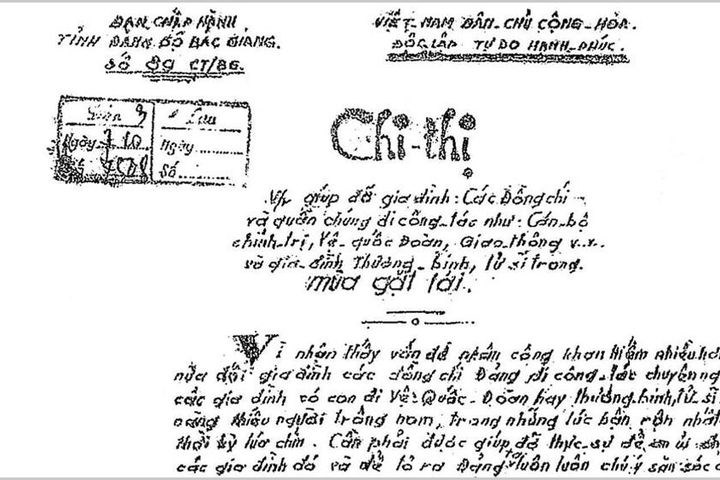 BAN CHẤP HÀNH
TỈNH ĐẢNG BỘ BẮC GIANG.
SỐ 89 CT/BG.
VIỆT-NAM DÂN-CHỦ CỘNG-HÒA.
ĐỘC LẬP TỰ DO HẠNH-PHÚC.
Lưu
Ngày 10
Ngày
Số
Chỉ-thị
V/v giúp đỡ gia đình: Các Đồng chí
và quần chúng đi công-tác như: Cán-bộ
chính-trị, Vệ-quốc Đoàn, Giao thông v.v.
và gia-đình Thương-binh, tử sĩ trong.
mùa gặt tới.
Vì nhận thấy vấn đề nhân công khan hiếm nhiều
nữa đối gia đình các đồng chí Đảng đi công-tác chuyên
các gia đình có con đi Vệ-Quốc-Đoàn hay thương binh, tử-sĩ
càng thiếu người trông nom, trong những lúc bận rộn
thời kỳ lúa chín. Cần phải được giúp đỡ thực-sự để an ủi
các gia đình đó và để tỏ ra Đảng ta luôn luôn chú ý săn sóc